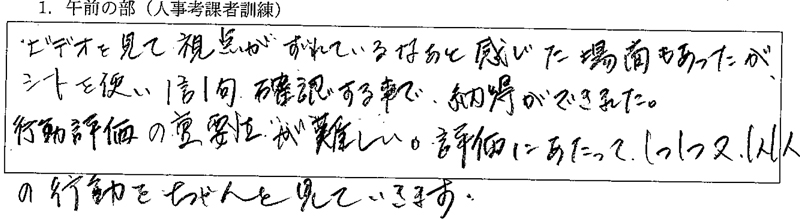 1. 午前の部（人事考課者訓練）
ビデオを見て視点がずれているなあと感じた場面もあったが、
シートを使い1言1句確認する事で、納得ができました。
行動評価の重要性が難しい。評価にあたって、1つ1つ又、1人1人
の行動をちゃんと見ていきます。